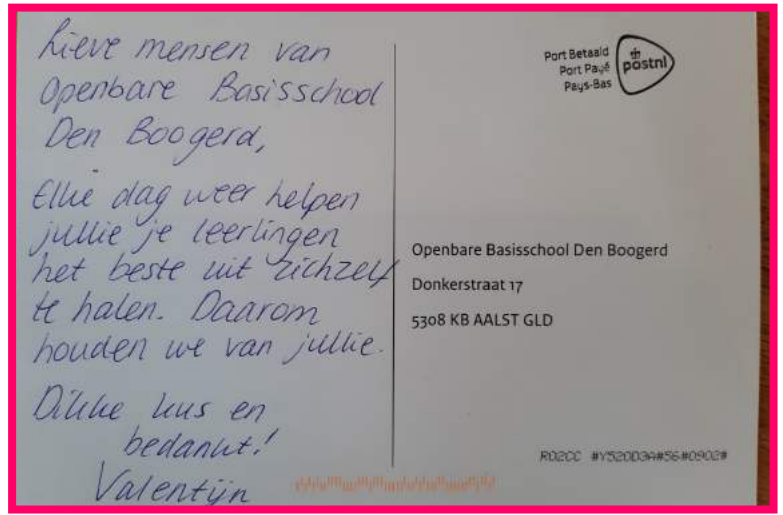 Lieve mensen van
Openbare Basisschool
Den Boogerd,
Elke dag weer helpen
jullie je leerlingen
het beste uit zichzelf
te halen. Daarom
houden we van jullie.
Dikke kus en
bedankt!
Valentijn
Port Betaald
Port Payé
Pays-Bas
postnl
Openbare Basisschool Den Boogerd
Donkerstraat 17
5308 KB AALST GLD
R02CC #Y520D3A#56#0902#